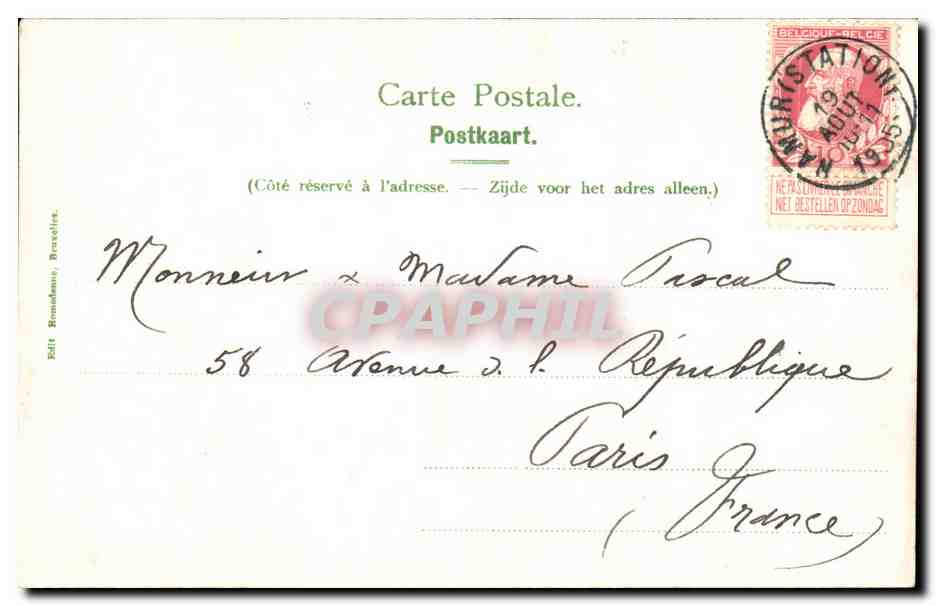 BELGIQUE-BELGIE
NAMUR (STATION)
19
AOUT
11
1905
10
NE PAS LIVRER LE DIMANCHE
NIET BESTELLEN OP ZONDAG
Carte Postale.
Postkaart.
(Côté réservé à l'adresse. — Zijde voor het adres alleen.)
Edit Romedenne, Bruxelles.
Monsieur & Madame Pascal
CPAPHIL
58 Avenue d. l. République
Paris
(France)